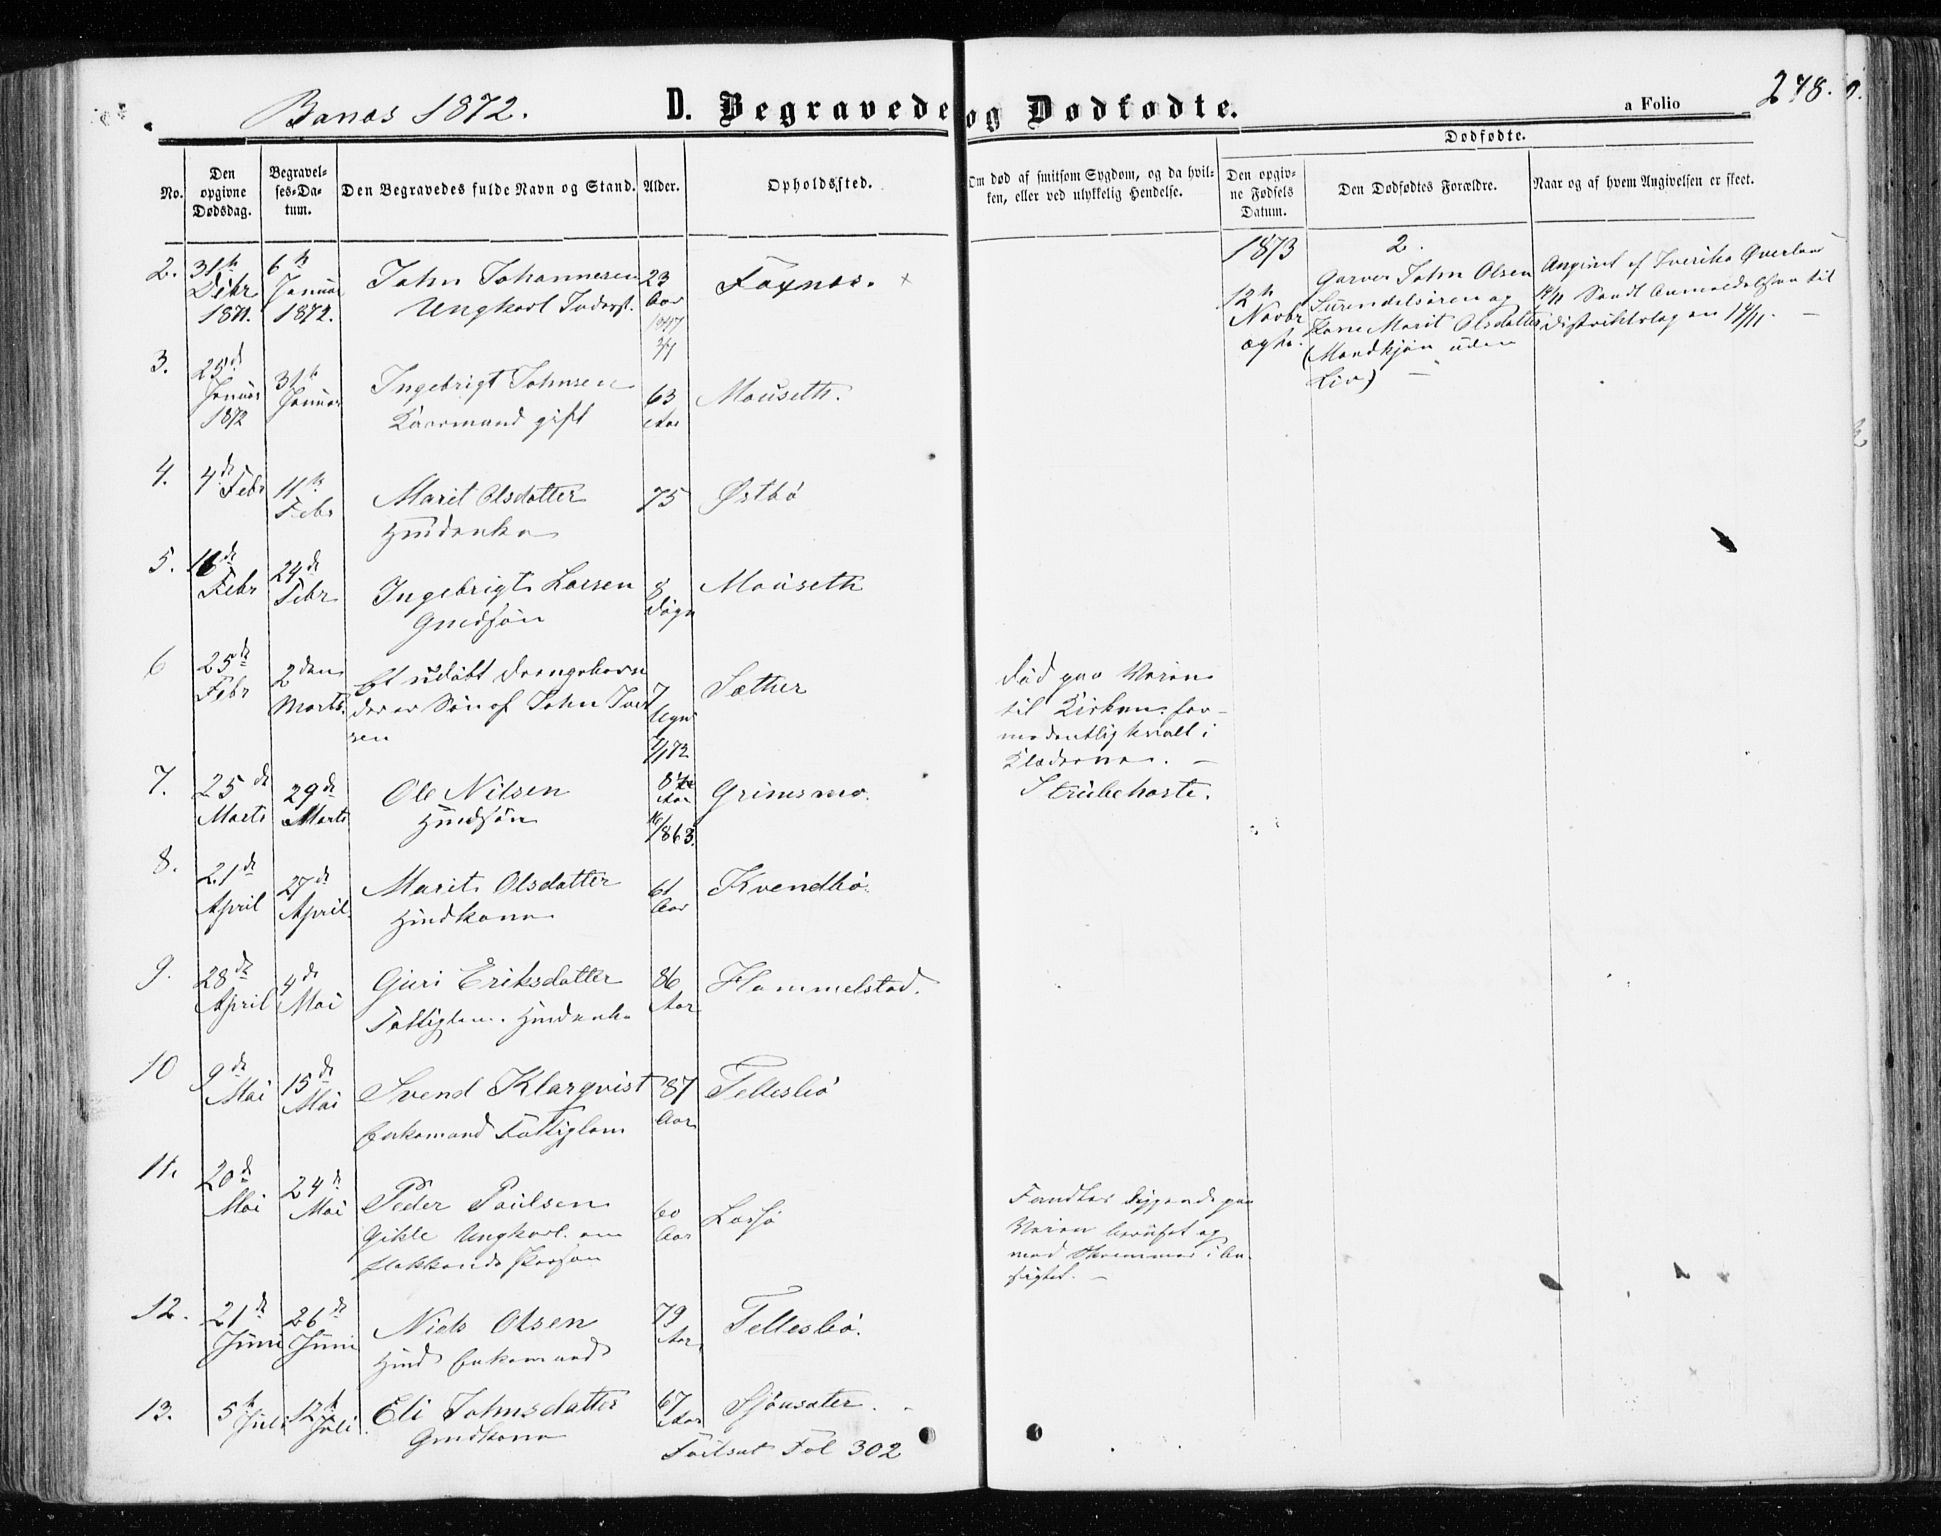 Bænæs 1872.
D. Begravede og Dødfødte.
a Folio
248.
Dødfødte.
No.
Den opgivne Dødsdag.
Begravelses-Datum.
Den Begravedes fulde Navn og Stand.
Alder.
Opholdssted.
Om død af smitsom Sygdom, og da hvilken, eller ved ulykkelig Hendelse.
Den opgivne Fødsels Datum.
Den Dødfødtes Forældre.
Naar og af hvem Angivelsen er skeet.
2. 31te Decbr 1871. 6te Januar 1872. John Johannesen Ungkarl 23 Aar Foxnæs. ×
3. 25de Januar 1872 31te Januar Ingebrigt Johnsen Kaarmand gift 63 Aar Mouseth.
4. 4de Febr 11te Febr Marit Olsdatter Huusenke 75 Østbø
5. 16de Febr 24de Febr Ingebrigt Larsen Gaardsøn 8 Døgn Mouseth
6 25de Febr 2den Marts. Et udøbt Drengebarn
der er Søn af John Iversen
7 Sæther
Død paa Veien
til Kirken, formodentlig kvalt i
Klæderne. –
7. 25de Marts 29de Marts Ole Nilsen Huussøn Aar 1863. Grimsmo. Strubehoste.
8. 21de April 27de April. Marit Olsdatter Huuskone 61 Aar Kvendbø.
9. 28de April 4de Mai Guri Eriksdatter
Fattiglem. Huusenke 86 Aar Hammelstad.
10 9de Mai 15de Mai Svend Klarqvist
Enkemand Fattiglem 87 Aar Tellesbø
11. 20de Mai 24de Mai Peder Paulsen
Ungkarl. en
flakkende Person
60 Aar
Fandtes liggende paa
Veien beruset og
med Skrammer i Ansigtet. –
12. 21de Juni 26de Juni Niels Olsen
Huus Enkemand 79 Aar Tellesbø.
13. 5te Juli 12te Juli. Eli Johnsdatter
Gaardkone 67 Aar Sjønsæter.
Fortsat Fol 302
1873
2.
12te Novbr ægte.
Garver John Olsen
Surendalsøren og
Kone Marit Olsdatter
(Mandkjøn uden
Liv) –
Angivet af Sverike Qverlan
Sendt Anmeldelsen til
Distriktslægen 14/11. –